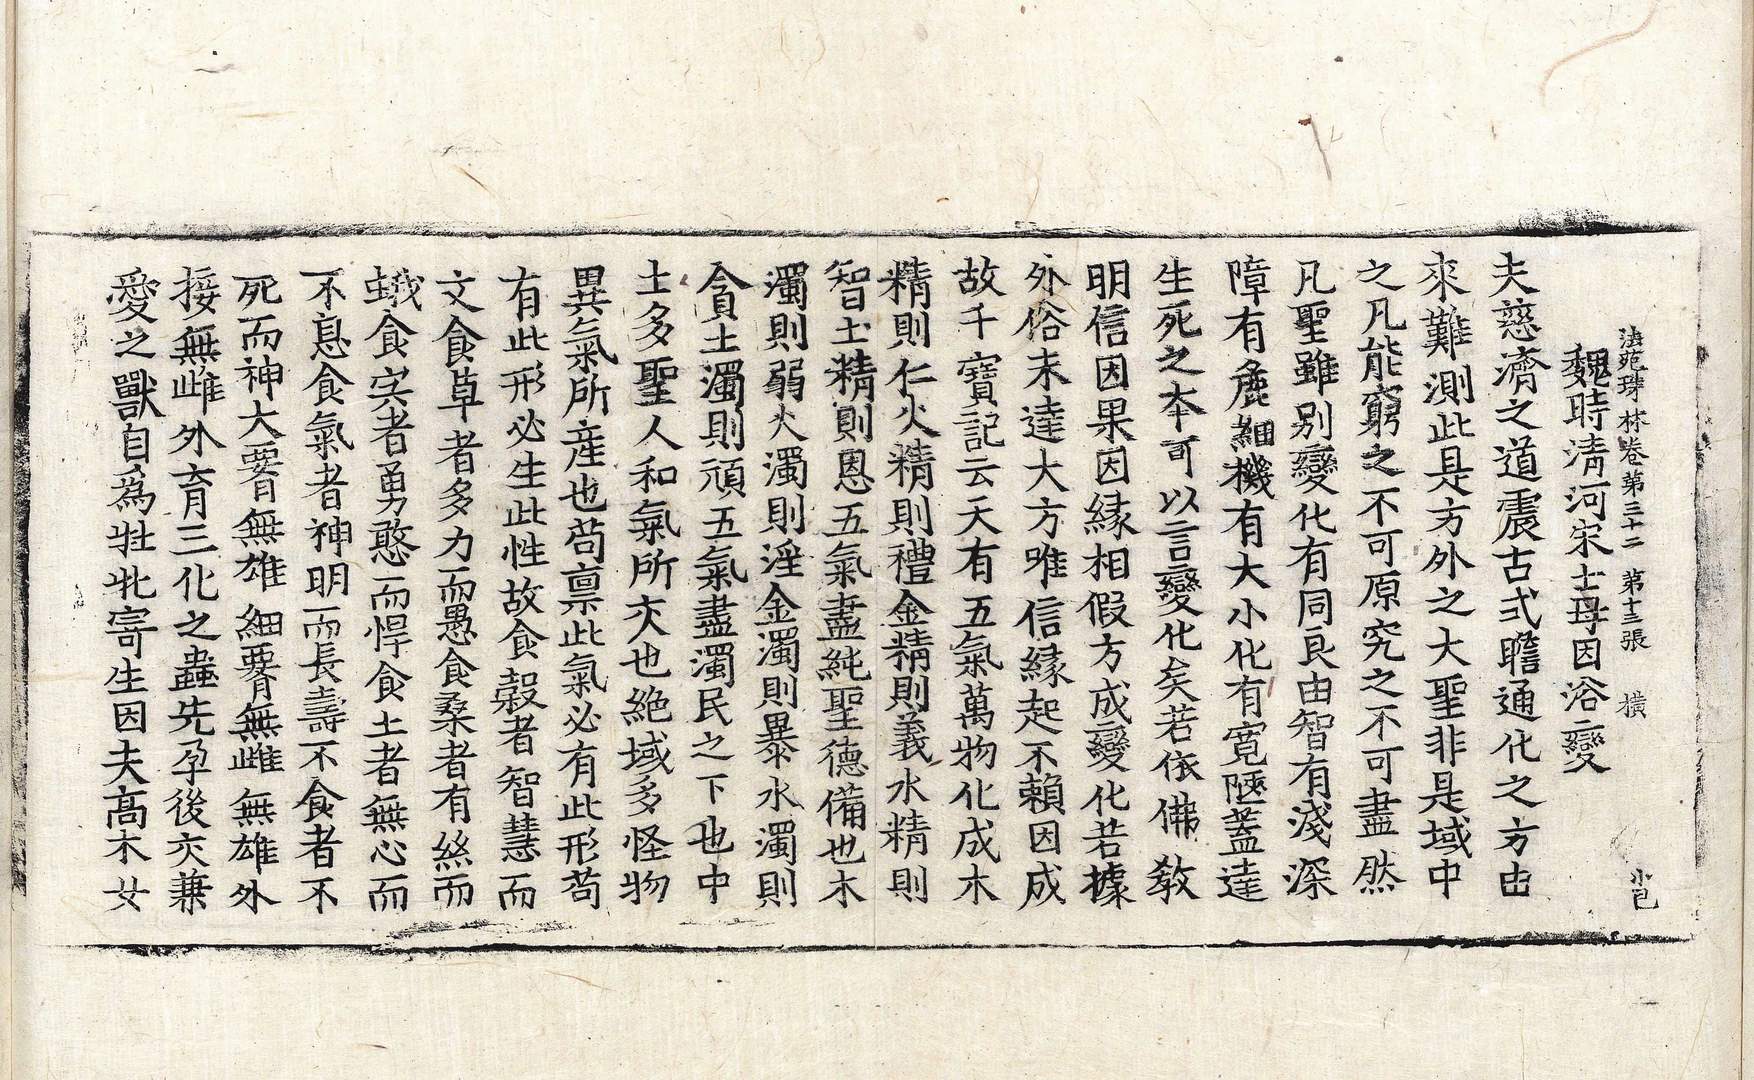 法苑珠林卷第三十二 第十三張 橫
小巳
魏時淸河宋士母因浴變
夫慈濟之道震古式瞻通化之方由
來難測此是方外之大聖非是域中
之凡能窮之不可原究之不可盡然
凡聖雖別變化有同良由智有淺深
障有麁細機有大小化有寬陿蓋達
生死之本可以言變化矣若依佛教
明信因果因緣相假方成變化若據
外俗未達大方唯信緣起不賴因成
故千寶記云天有五氣萬物化成木
精則仁火精則禮金精則義水精則
智土精則恩五氣盡純聖德備也木
濁則弱火濁則淫金濁則暴水濁則
貪土濁則頑五氣盡濁民之下也中
土多聖人和氣所交也絕域多怪物
異氣所產也苟禀此氣必有此形苟
有此形必生此性故食穀者智慧而
文食草者多力而愚食桑者有絲而
蛾食宍者勇憨而悍食土者無心而
不息食氣者神明而長壽不食者不
死而神大𦝫無雄細𦝫無雌無雄外
接無雌外育三化之蟲先孕後交兼
愛之獸自爲牡牝寄生因夫高木女